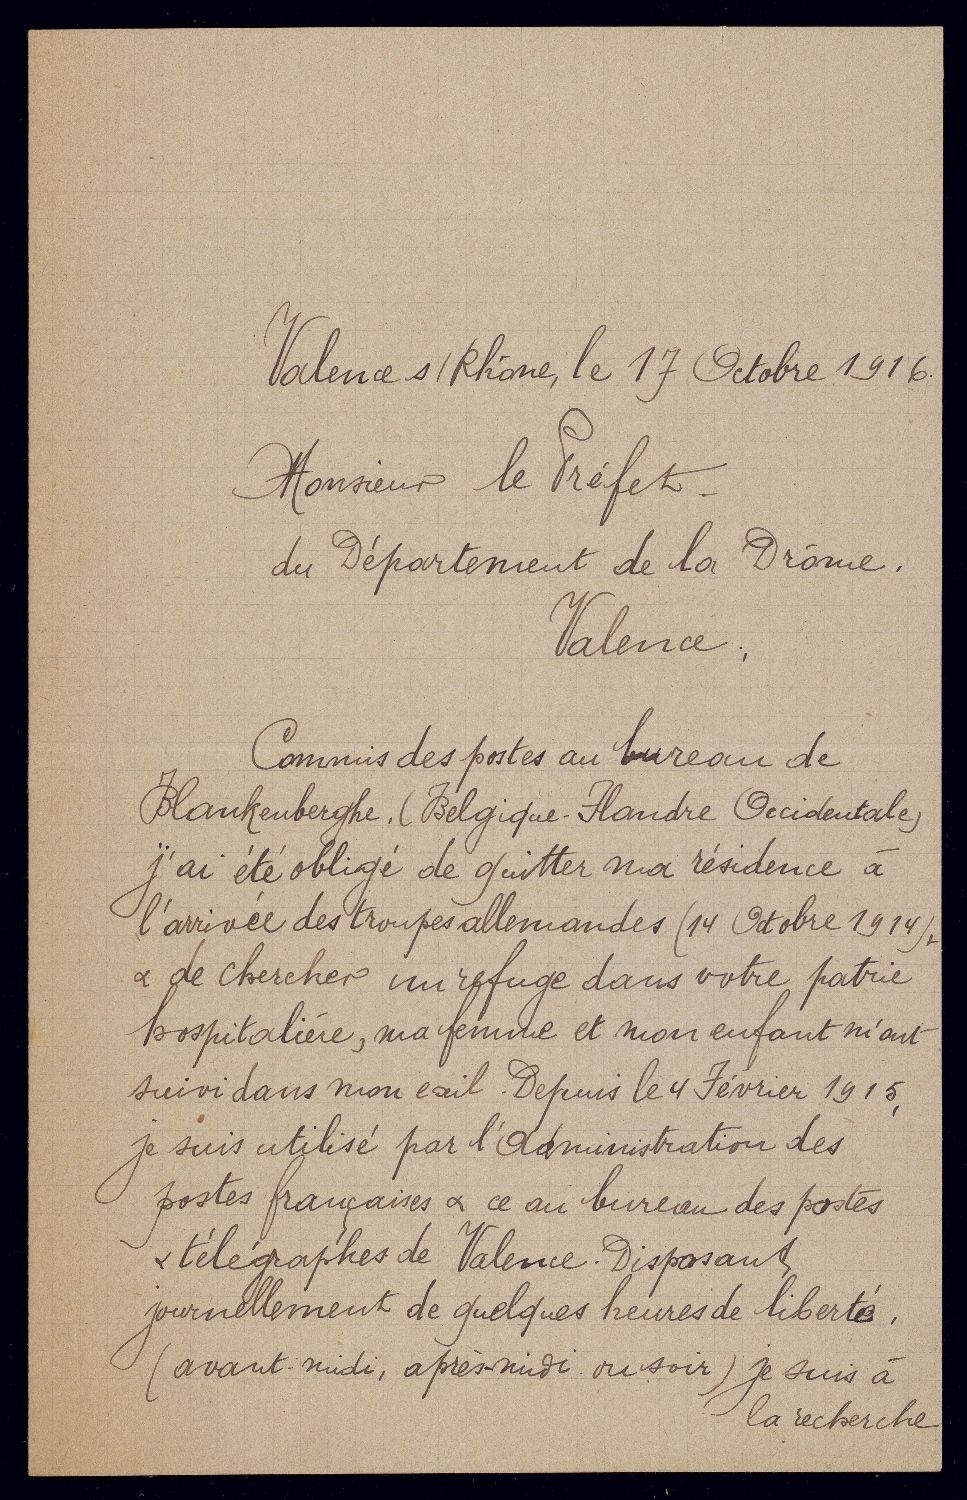 Valence s/Rhône, le 17 Octobre 1916.
Monsieur le Préfet
du Département de la Drôme.
Valence.
Commis des postes au bureau de
Blankenberghe. (Belgique-Flandre Occidentale)
j'ai été obligé de quitter ma résidence à
l'arrivée des troupes allemandes (14 Octobre 1914),
& de chercher un refuge dans votre patrie
hospitalière, ma femme et mon enfant m'ont
suivi dans mon exil. Depuis le 4 Février 1915,
je suis utilisé par l'Administration des
postes françaises & ce au bureau des postes
& télégraphes de Valence. Disposant,
journellement de quelques heures de liberté,
(avant-midi, après-midi ou soir) je suis à
la recherche